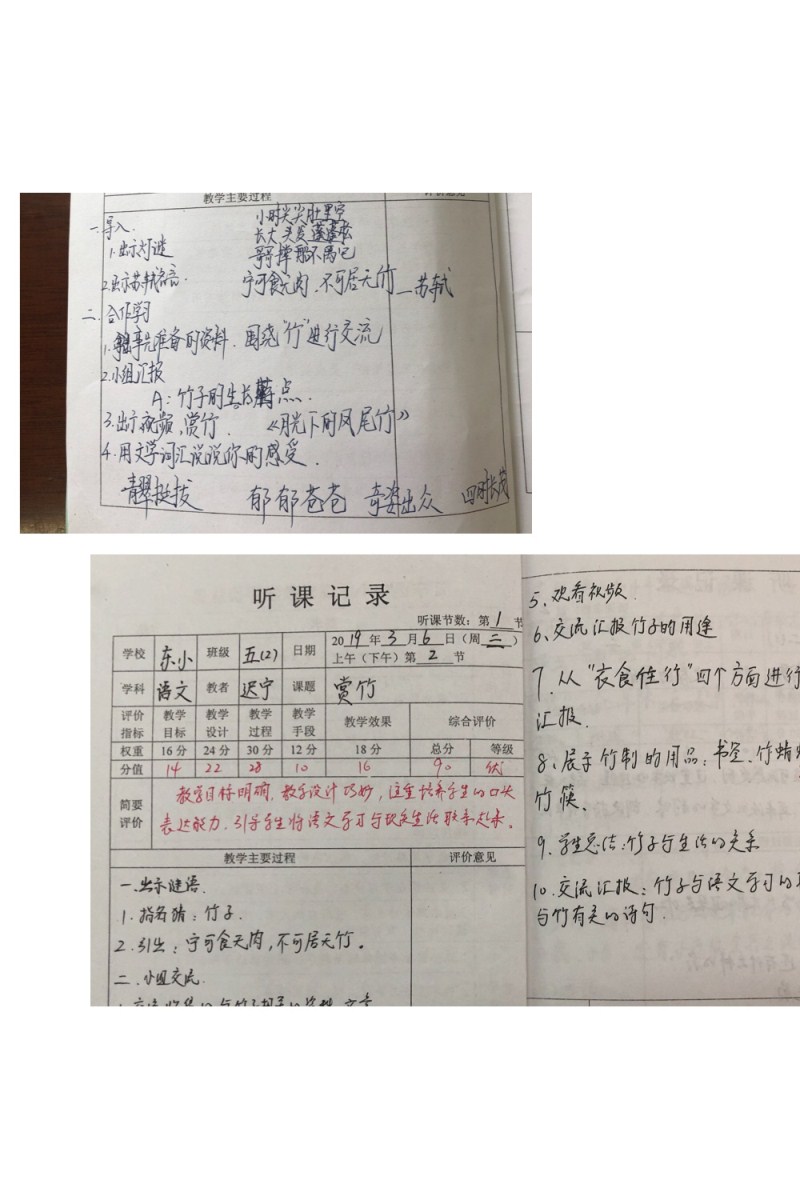 教学主要过程
一.导入.
小时尖尖肚里空
长大头发蓬蓬松
1.出示灯谜
哥哥撑船不离它
2.出示苏轼名言.
宁可食无肉.不可居无竹—苏轼
二.合作学习
1.事先准备的资料.围绕"竹"进行交流
2.小组汇报
A:竹子的生长特点.
3.出示视频,赏竹. 《月光下的凤尾竹》
4.用文学词汇说说你的感受.
青翠挺拔 郁郁苍苍 奇姿出众 四时长茂
听课记录
听课节数:第 1 节
学校 东小 班级 五(2) 日期 2019年3月6日(周三)
上午(下午)第 2 节
学科 语文 教者 迟宁 课题 赏竹
评价指标 教学目标 教学设计 教学过程 教学手段 教学效果 综合评价
权重 16分 24分 30分 12分 18分 总分 等级
分值 14 22 28 10 16 90 优
简要评价
教学目标明确,教学设计巧妙,注重培养学生的口头
表达能力.引导学生将语文学习与现实生活联系起来。
教学主要过程 评价意见
一.出示谜语.
1.指名猜:竹子.
2.引出:宁可食无肉,不可居无竹。
二.小组交流.
5、观看视频.
6、交流汇报竹子的用途
7.从"衣食住行"四个方面进行
汇报.
8、展示竹制的用品:书签、竹蜻
竹筷.
9.学生总结:竹子与生活的关系
10.交流汇报:竹子与语文学习的
与竹有关的诗句.